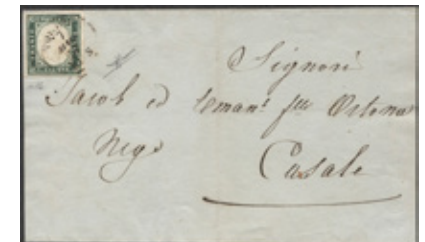 Signori
Jacob ed Eman.l flli Ortona
Neg.i
Casale